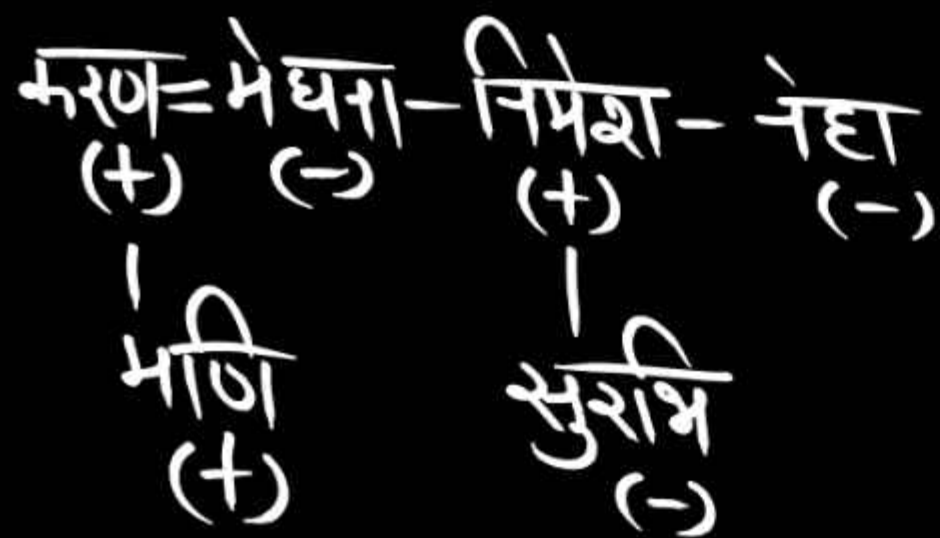 करण=मेघना-निमेश-नेहा
(+) (-) (+) (-)
| |
मणि सुरभि
(+) (-)